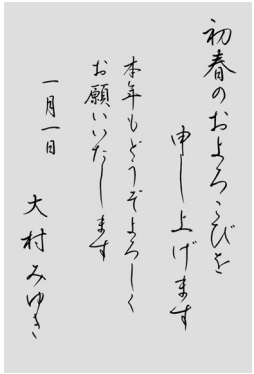 初春のおよろこびを
申し上げます
本年もどうぞよろしく
お願いいたします
一月一日
大村みゆき